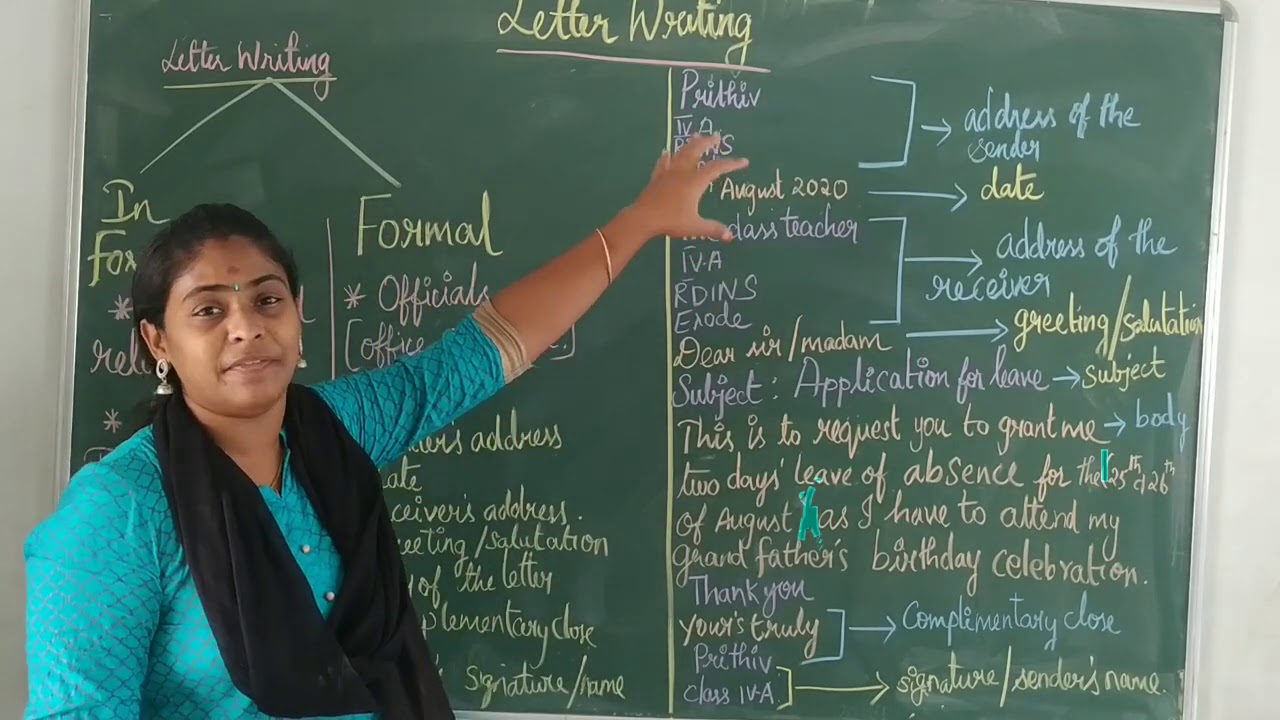 Letter Writing
Letter Writing
In
Formal
* Officials
*
address
signature/name
receiver's address.
greeting/salutation
of the letter
complementary close
Prithiv
IV.A
August 2020
class teacher
IV.A
RDINS
Erode
Dear sir/madam
Subject: Application for leave
This is to request you to grant me
two days' leave of absence for the 25th & 26th
of August as I have to attend my
Grand father's birthday celebration.
Thank you
your's truly
Prithiv
class IV-A
address of the
sender
date
address of the
receiver
greeting/salutation
subject
body
Complimentary close
signature/sender's name.